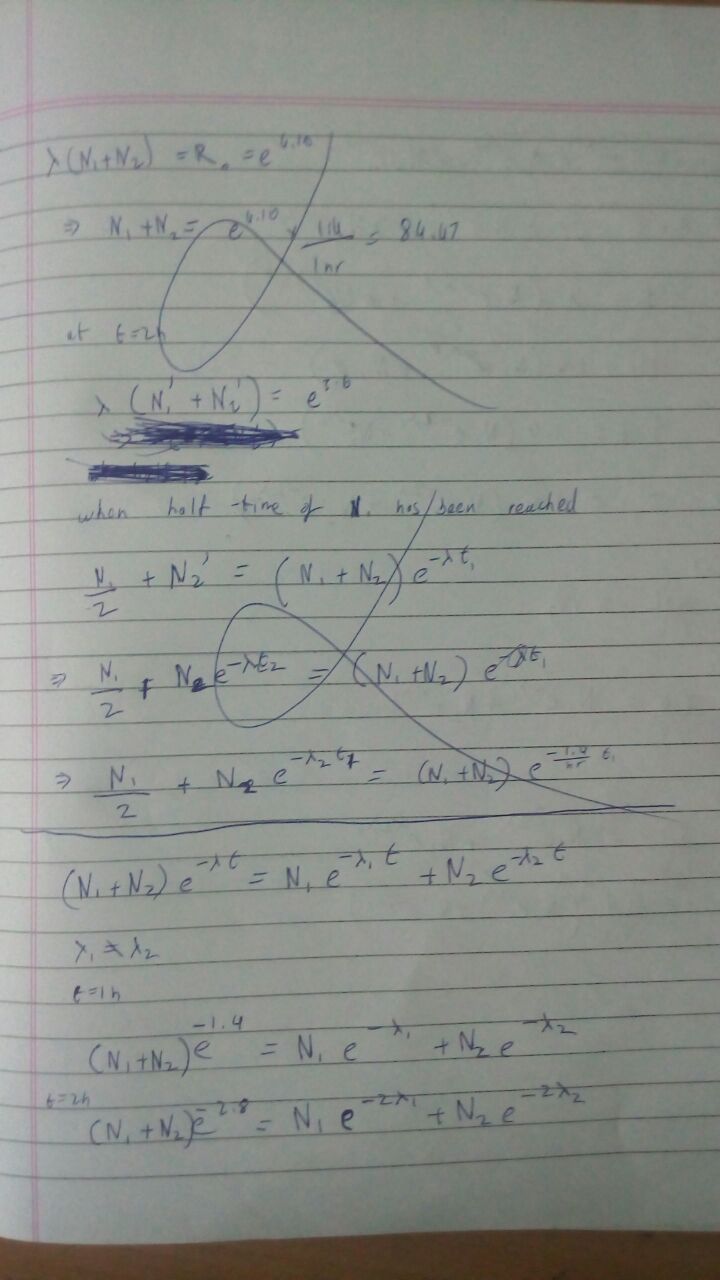 λ(N₁+N₂) = R₀ = e^4.10
⇒ N₁ + N₂ = e^4.10 × 1.4/1hr = 84.47
at t=2h
λ (N₁' + N₂') = e^3.6
when half-time of N₁ has been reached
N₁/2 + N₂' = (N₁ + N₂) e^-λt₁
⇒ N₁/2 + N₂ e^-λt₂ = (N₁+N₂) e^-λt₁
⇒ N₁/2 + N₂ e^-λ₂t₁ = (N₁+N₂) e^-1.4/hr t₁
(N₁+N₂) e^-λt = N₁ e^-λ₁t + N₂ e^-λ₂t
λ₁ ≠ λ₂
t=1h
(N₁+N₂)e^-1.4 = N₁ e^-λ₁ + N₂ e^-λ₂
t=2h
(N₁+N₂)e^-2.8 = N₁ e^-2λ₁ + N₂ e^-2λ₂